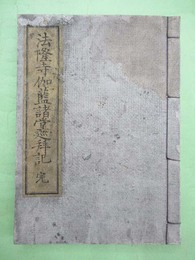 法隆寺伽藍諸堂巡拝記 完